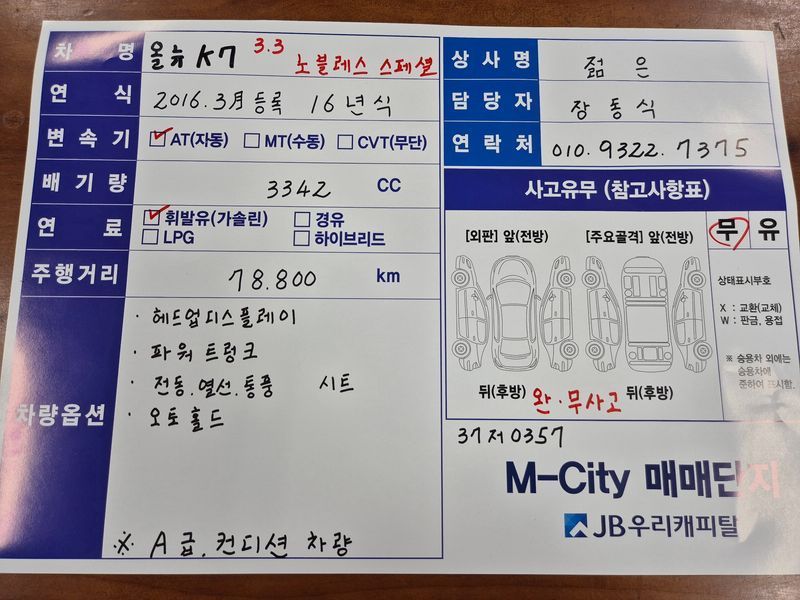 차 명 올뉴 K7 3.3 노블레스 스페셜
연 식 2016.3月 등록 16년식
변속기 AT(자동) MT(수동) CVT(무단)
배기량 3342 CC
연 료 휘발유(가솔린) 경유
LPG 하이브리드
주행거리 78.800 km
차량옵션
· 헤드업디스플레이
· 파워트렁크
· 전동.열선.통풍 시트
· 오토홀드
※ A급.컨디션 차량
상사명 젊은
담당자 장동식
연락처 010.9322.7375
사고유무 (참고사항표)
[외판] 앞(전방) [주요골격] 앞(전방)
무 유
상태표시부호
X : 교환(교체)
W : 판금, 용접
※ 승용차 외에는
승용차에
준하여 표시함.
뒤(후방) 완.무사고 뒤(후방)
37저0357
M-City 매매단지
JB우리캐피탈